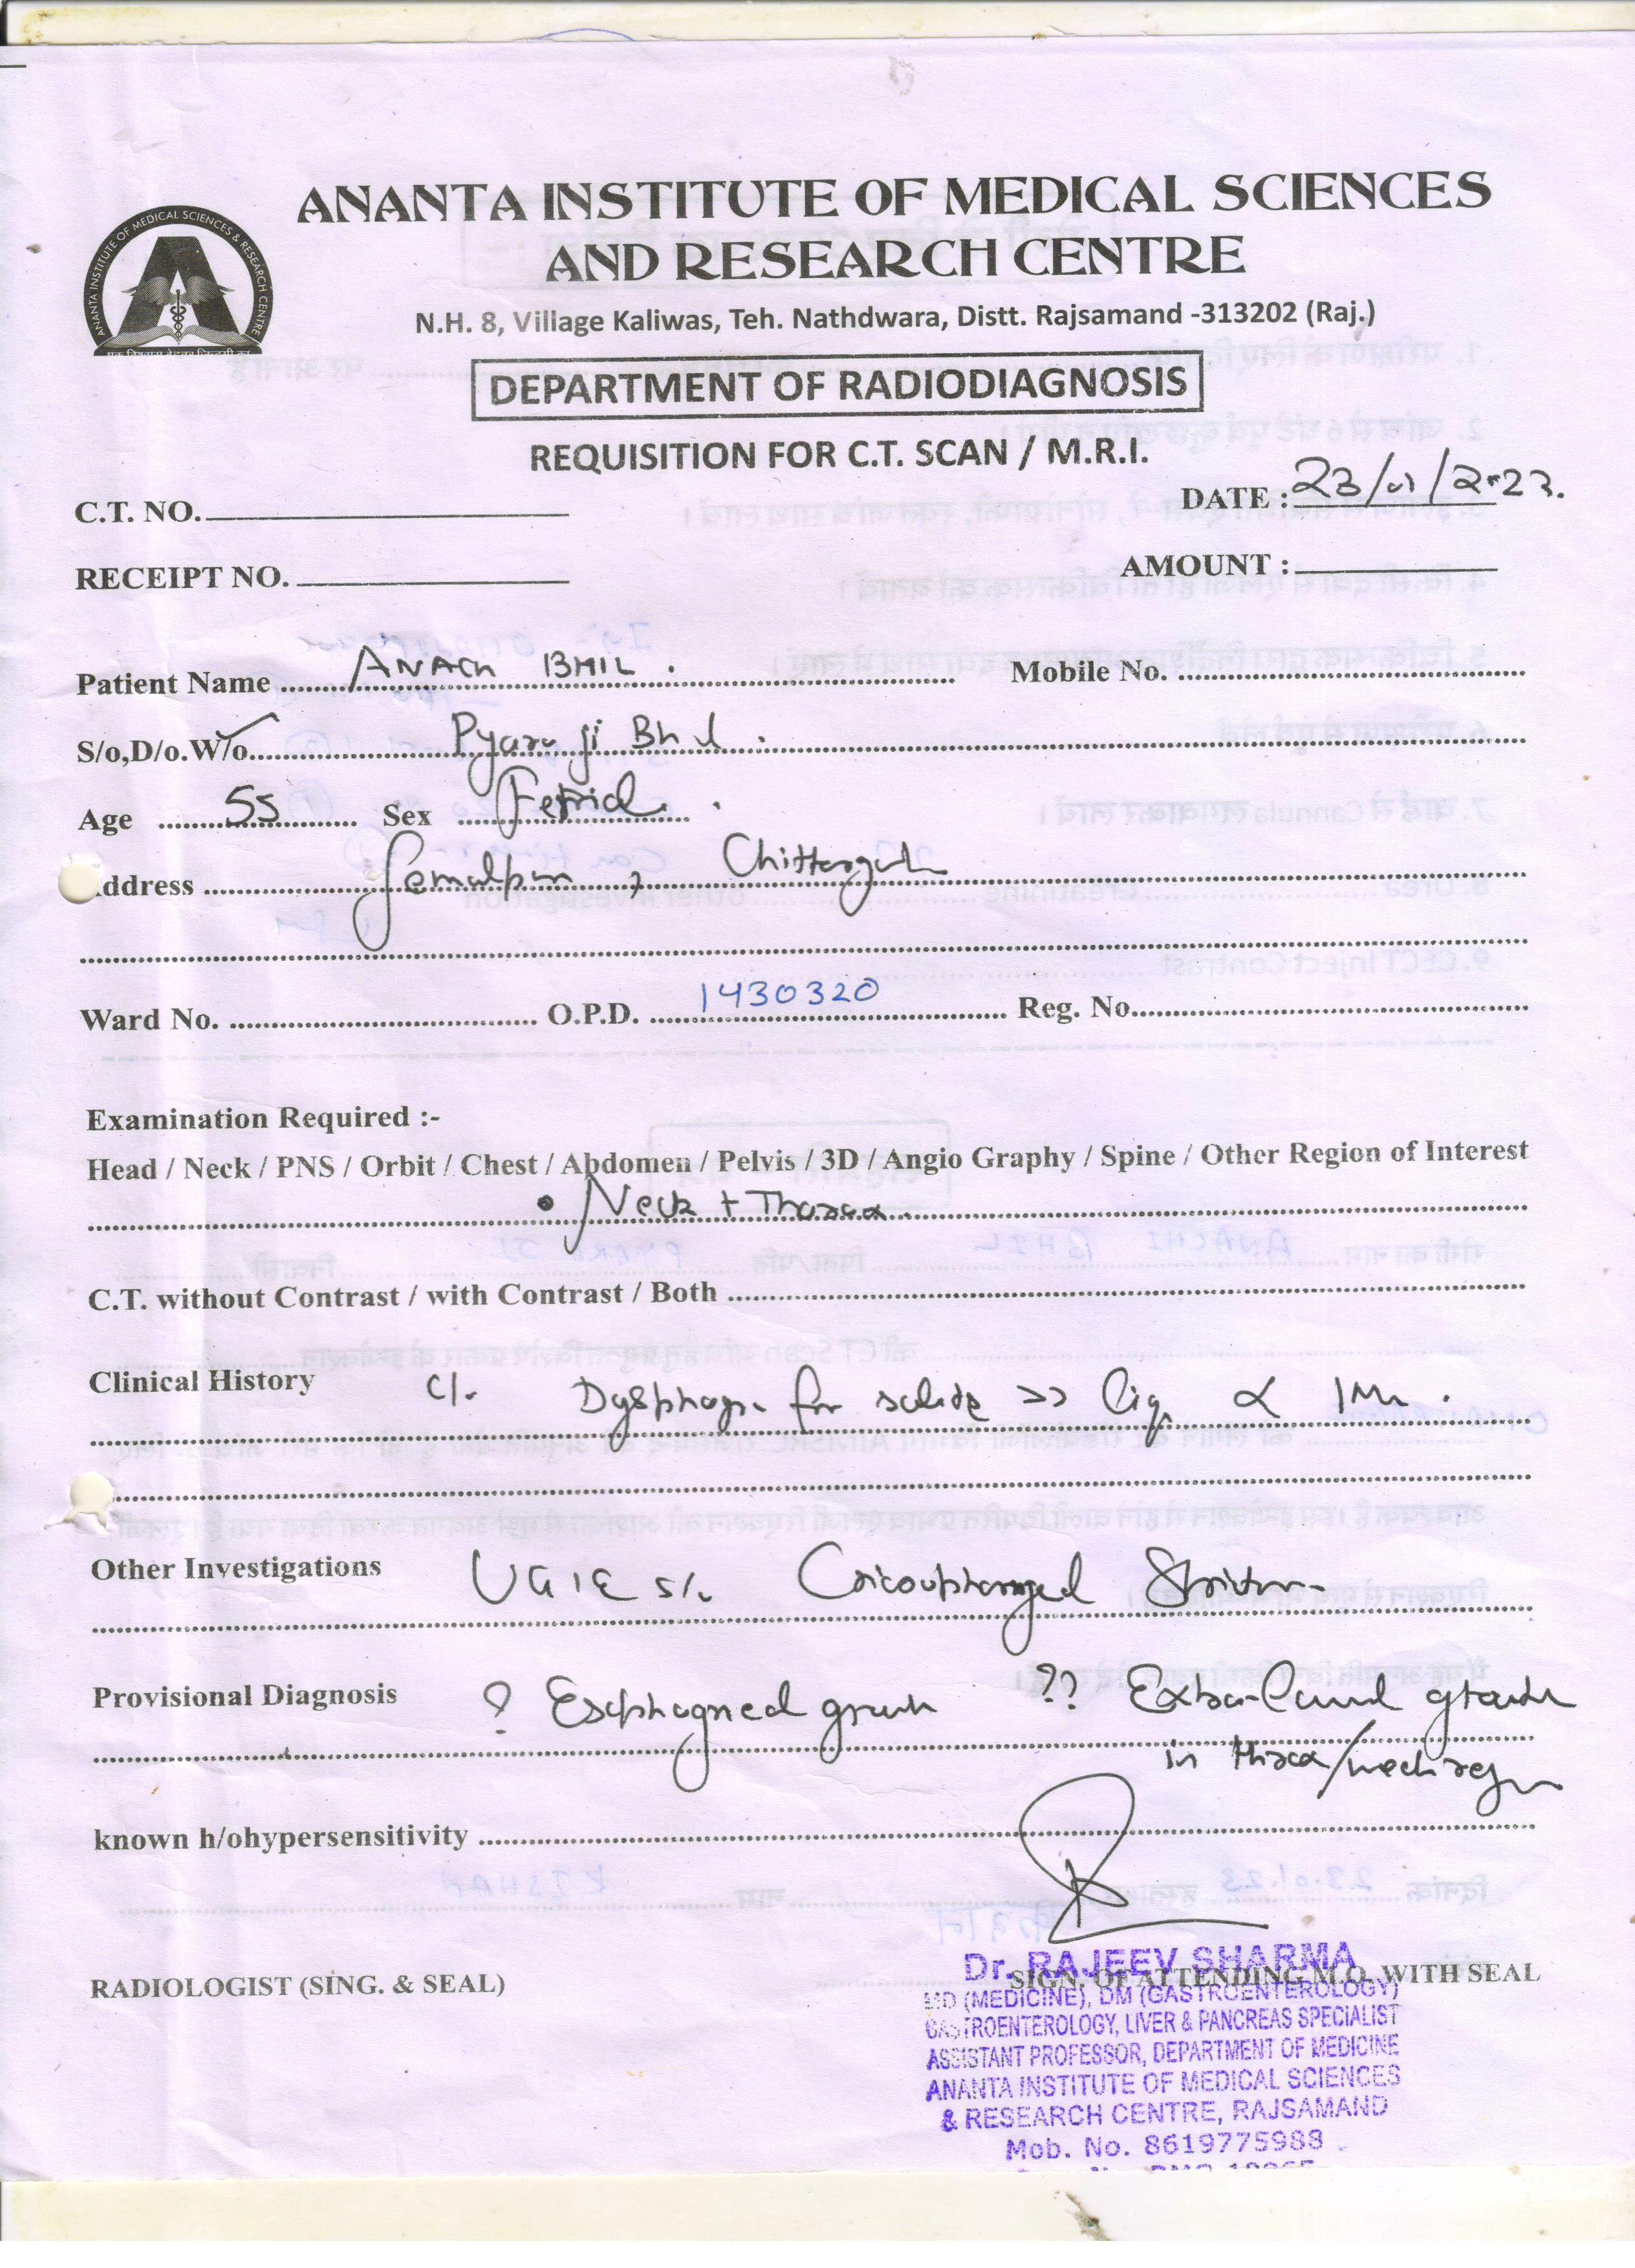 ANANTA INSTITUTE OF MEDICAL SCIENCES & RESEARCH CENTRE
ANANTA INSTITUTE OF MEDICAL SCIENCES
AND RESEARCH CENTRE
N.H. 8, Village Kaliwas, Teh. Nathdwara, Distt. Rajsamand -313202 (Raj.)
DEPARTMENT OF RADIODIAGNOSIS
REQUISITION FOR C.T. SCAN / M.R.I.
C.T. NO. DATE : 23/01/2023.
RECEIPT NO. AMOUNT :
Patient Name ANACH BHIL . Mobile No.
S/o,D/o.W/o. Pyara ji Bhil .
Age 55 Sex
Address Chittorgarh
Ward No. O.P.D. 1430320 Reg. No.
Examination Required :-
Head / Neck / PNS / Orbit / Chest / Abdomen / Pelvis / 3D / Angio Graphy / Spine / Other Region of Interest
• Neck + Thorax
C.T. without Contrast / with Contrast / Both
Clinical History c/. Dysphagia for solids >> liq.
Other Investigations UGIE s/. Cricopharyngeal Stricture
Provisional Diagnosis ? Esophageal growth ?? Extra-luminal growth
in thorax/neck region
known h/ohypersensitivity
Dr. RAJEEV SHARMA
RADIOLOGIST (SING. & SEAL) SIGN. OF ATTENDING M.O. WITH SEAL
MD (MEDICINE), DM (GASTROENTEROLOGY)
GASTROENTEROLOGY, LIVER & PANCREAS SPECIALIST
ASSISTANT PROFESSOR, DEPARTMENT OF MEDICINE
ANANTA INSTITUTE OF MEDICAL SCIENCES
& RESEARCH CENTRE, RAJSAMAND
Mob. No. 8619775988